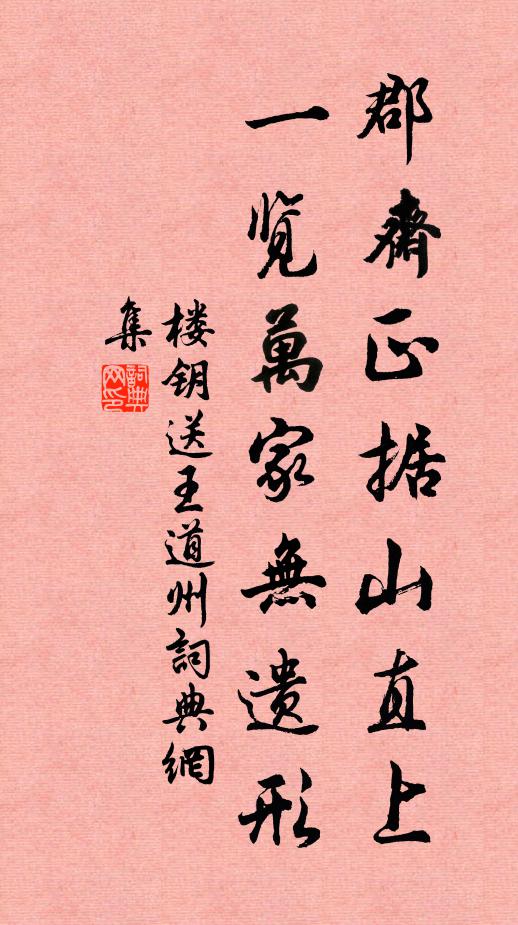 郡齋正据山直上
一览萬家無遗形
楼钥送王道州詞典網
集
詞典網印